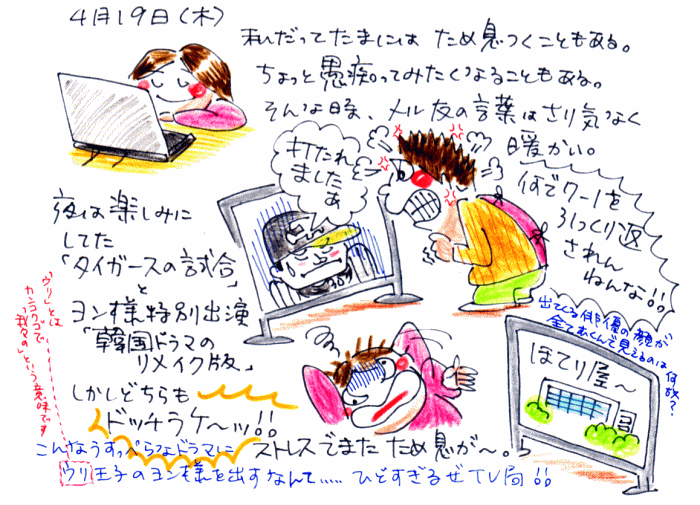 4月19日(木)
私だってたまには ため息つくこともある。
ちょっと愚痴ってみたくなることもある。
そんな時、メル友の言葉はさり気なく
暖かい。
打たれ
ましたぁ
何でワー1を
引っくり返
されん
ねんな!!
夜は楽しみに
してた
「タイガースの試合」
と
ヨン様特別出演
「韓国ドラマの
リメイク版」
しかしどちらも
ドッチラケ〜ッ!!
出てくる俳優の顔が
全て
見えるのは何故?
ほてり屋〜
こんなうすっぺらなドラマに ストレスでまた ため息が〜。
ウリ王子のヨン様を出すなんて..... ひどすぎるぜTV局!!
「ウリ」とは
カンコクゴで
「我々の」という意味です